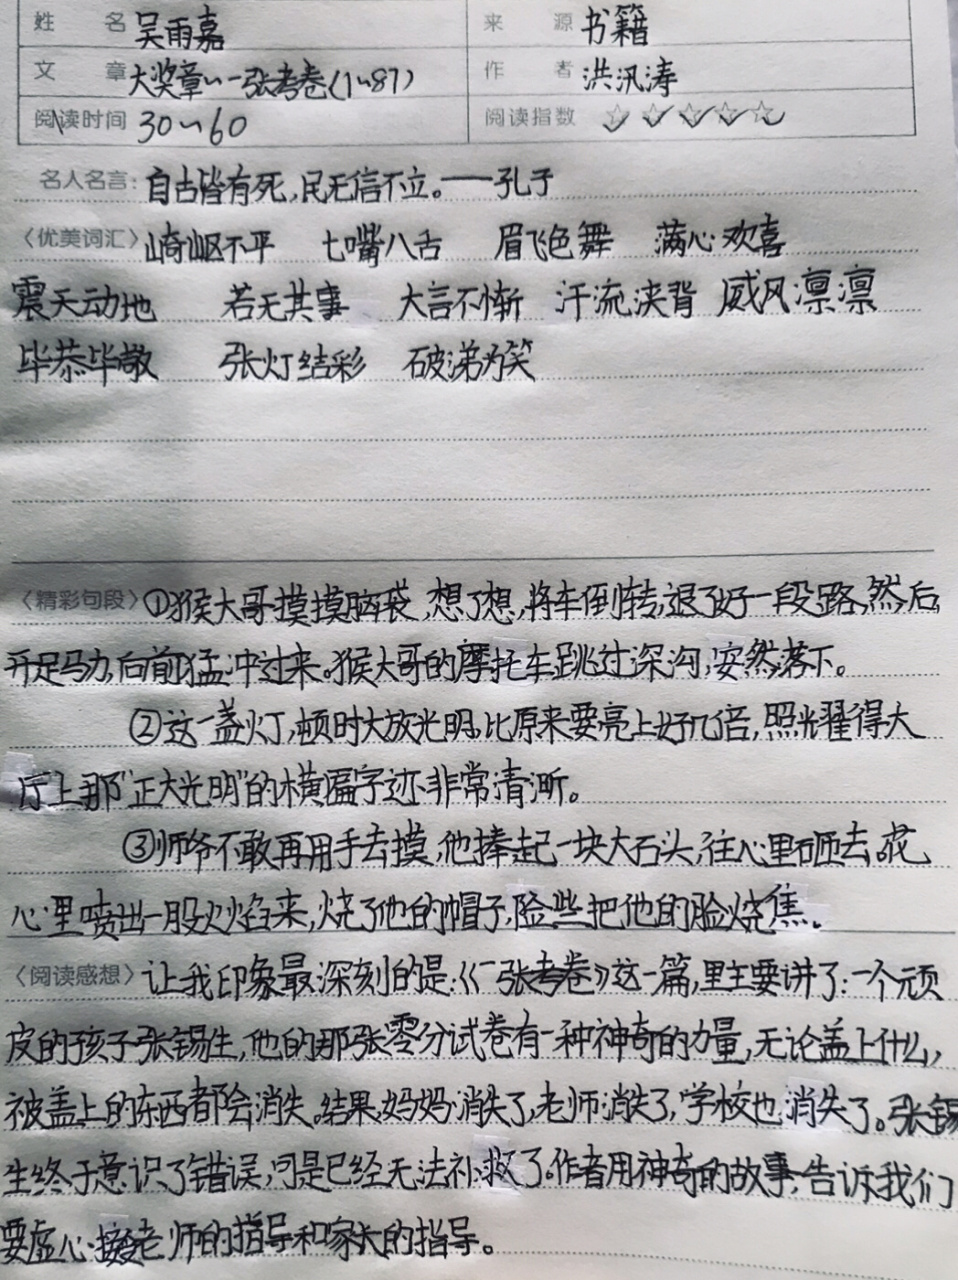 姓 名 吴雨嘉 来 源 书籍
文 章 大奖章~一张考卷(1~87) 作 者 洪汛涛
阅读时间 30~60 阅读指数 ☆☆☆☆☆
名人名言: 自古皆有死,民无信不立。——孔子
〈优美词汇〉崎岖不平 七嘴八舌 眉飞色舞 满心欢喜
震天动地 若无其事 大言不惭 汗流浃背 威风凛凛
毕恭毕敬 张灯结彩 破涕为笑
〈精彩句段〉①猴大哥摸摸脑袋,想了想,将车倒转,退了好一段路,然后
开足马力,向前猛冲过来。猴大哥的摩托车跳过深沟,安然落下。
②这一盏灯,顿时大放光明,比原来要亮上好几倍,照耀得大
厅上那"正大光明"的横匾字迹非常清晰。
③师爷不敢再用手去摸,他捧起一块大石头,往心里砸去。花
心里喷出一股火焰来,烧了他的帽子,险些把他的脸烧焦。
〈阅读感想〉让我印象最深刻的是:《一张考卷》这一篇,里主要讲了:一个顽
皮的孩子张锡生,他的那张零分试卷有一种神奇的力量,无论盖上什么,
被盖上的东西都会消失。结果妈妈消失了,老师消失了,学校也消失了。张锡
生终于意识了错误,可是已经无法补救了。作者用神奇的故事,告诉我们
要虚心接受老师的指导和家长的指导。